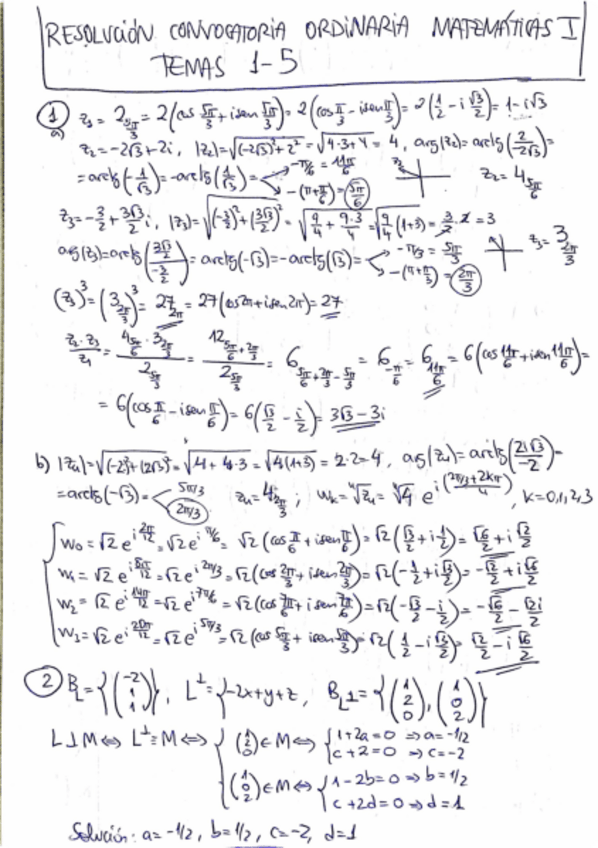 RESOLUCIÓN CONVOCATORIA ORDINARIA MATEMÁTICAS I
TEMAS 1-5
① a) z₁ = 2_{5π/3} = 2(cos 5π/3 + i sen 5π/3) = 2(cos π/3 - i sen π/3) = 2(1/2 - i √3/2) = 1 - i√3
z₂ = -2√3 + 2i, |z₂| = √((-2√3)² + 2²) = √(4·3+4) = 4, arg(z₂) = arctg(2/-2√3) =
= arctg(-1/√3) = -arctg(1/√3) = -π/6 = 11π/6
-(π+π/6) = 5π/6 z₂ z₂ = 4_{5π/6}
z₃ = -3/2 + 3√3/2 i, |z₃| = √((-3/2)² + (3√3/2)²) = √(9/4 + 9·3/4) = √(9/4 (1+3)) = 3/2·2 = 3
arg(z₃) = arctg((3√3/2)/(-3/2)) = arctg(-√3) = -arctg(√3) = -π/3 = 5π/3
-(π+π/3) = 2π/3 z₃ = 3_{2π/3}
(z₃)³ = (3_{2π/3})³ = 27_{2π} = 27(cos 2π + i sen 2π) = 27
z₂·z₃/z₁ = 4_{5π/6}·3_{2π/3}/2_{5π/3} = 12_{5π/6+2π/3}/2_{5π/3} = 6_{5π/6+2π/3-5π/3} = 6_{-π/6} = 6_{11π/6} = 6(cos 11π/6 + i sen 11π/6) =
= 6(cos π/6 - i sen π/6) = 6(√3/2 - i/2) = 3√3 - 3i
b) |z₄| = √((-2)² + (2√3)²) = √(4+4·3) = √(4(1+3)) = 2·2 = 4, arg(z₄) = arctg(2√3/-2) =
= arctg(-√3) = 5π/3
2π/3 z₄ = 4_{2π/3}; w_k = ⁴√z₄ = ⁴√4 e^{i(2π/3+2kπ/4)}, k = 0,1,2,3
w₀ = √2 e^{i 2π/12} = √2 e^{i π/6} = √2 (cos π/6 + i sen π/6) = √2 (√3/2 + i 1/2) = √6/2 + i √2/2
w₁ = √2 e^{i 8π/12} = √2 e^{i 2π/3} = √2 (cos 2π/3 + i sen 2π/3) = √2 (-1/2 + i √3/2) = -√2/2 + i √6/2
w₂ = √2 e^{i 14π/12} = √2 e^{i 7π/6} = √2 (cos 7π/6 + i sen 7π/6) = √2 (-√3/2 - i/2) = -√6/2 - √2i/2
w₃ = √2 e^{i 20π/12} = √2 e^{i 5π/3} = √2 (cos 5π/3 + i sen 5π/3) = √2 (1/2 - i √3/2) = √2/2 - i √6/2
② B_L = {(-2 1 1)}, L^⊥ = {-2x+y+z, B_L⊥ = {(1 2 0), (1 0 2)}
L⊥M ⇔ L^⊥ = M ⇔ (1 2 0) ∈ M ⇔ 1+2a=0 ⇒ a=-1/2
c+2=0 ⇒ c=-2
(1 0 2) ∈ M ⇔ 1-2b=0 ⇒ b=1/2
c+2d=0 ⇒ d=1
Solución: a=-1/2, b=1/2, c=-2, d=1